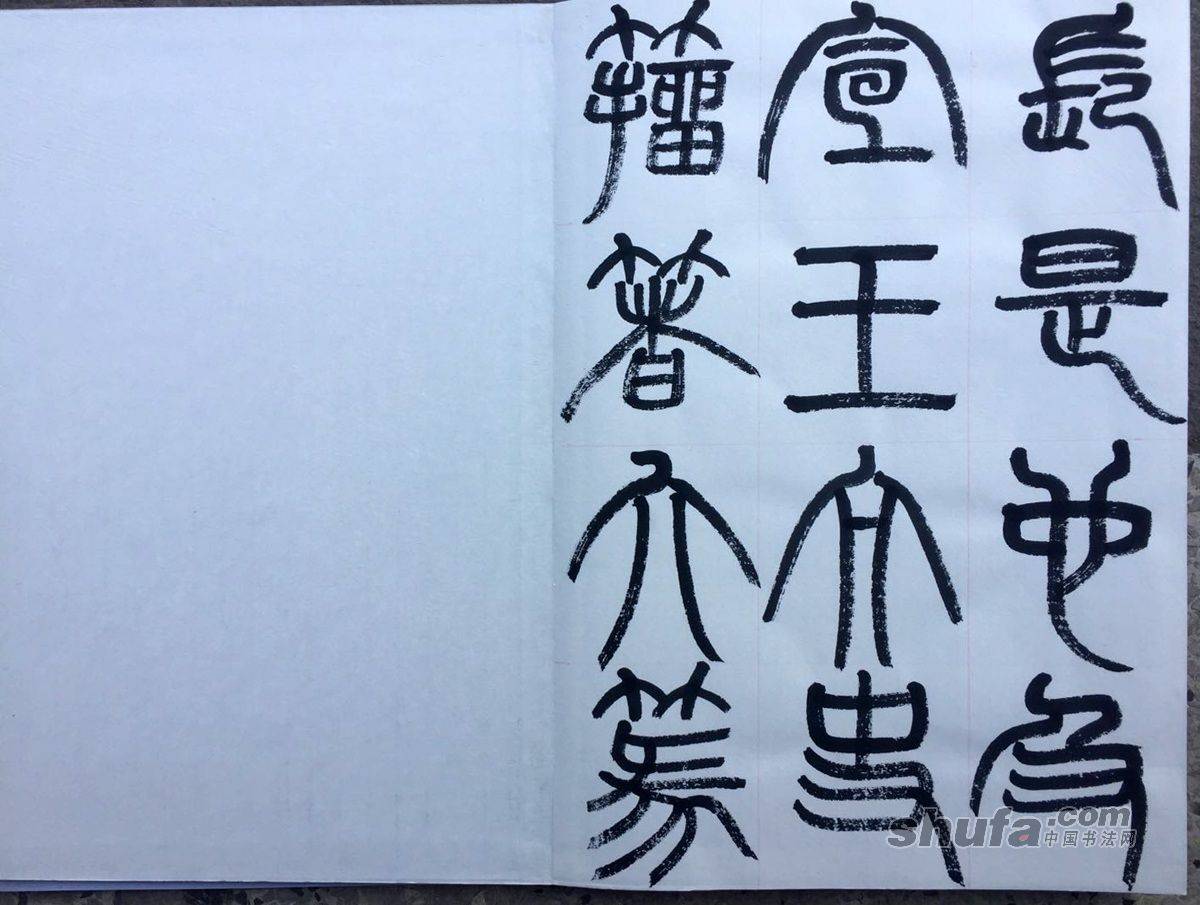 長是也及
宣王太史
籀箸大篆
shufa.com
中国书法网